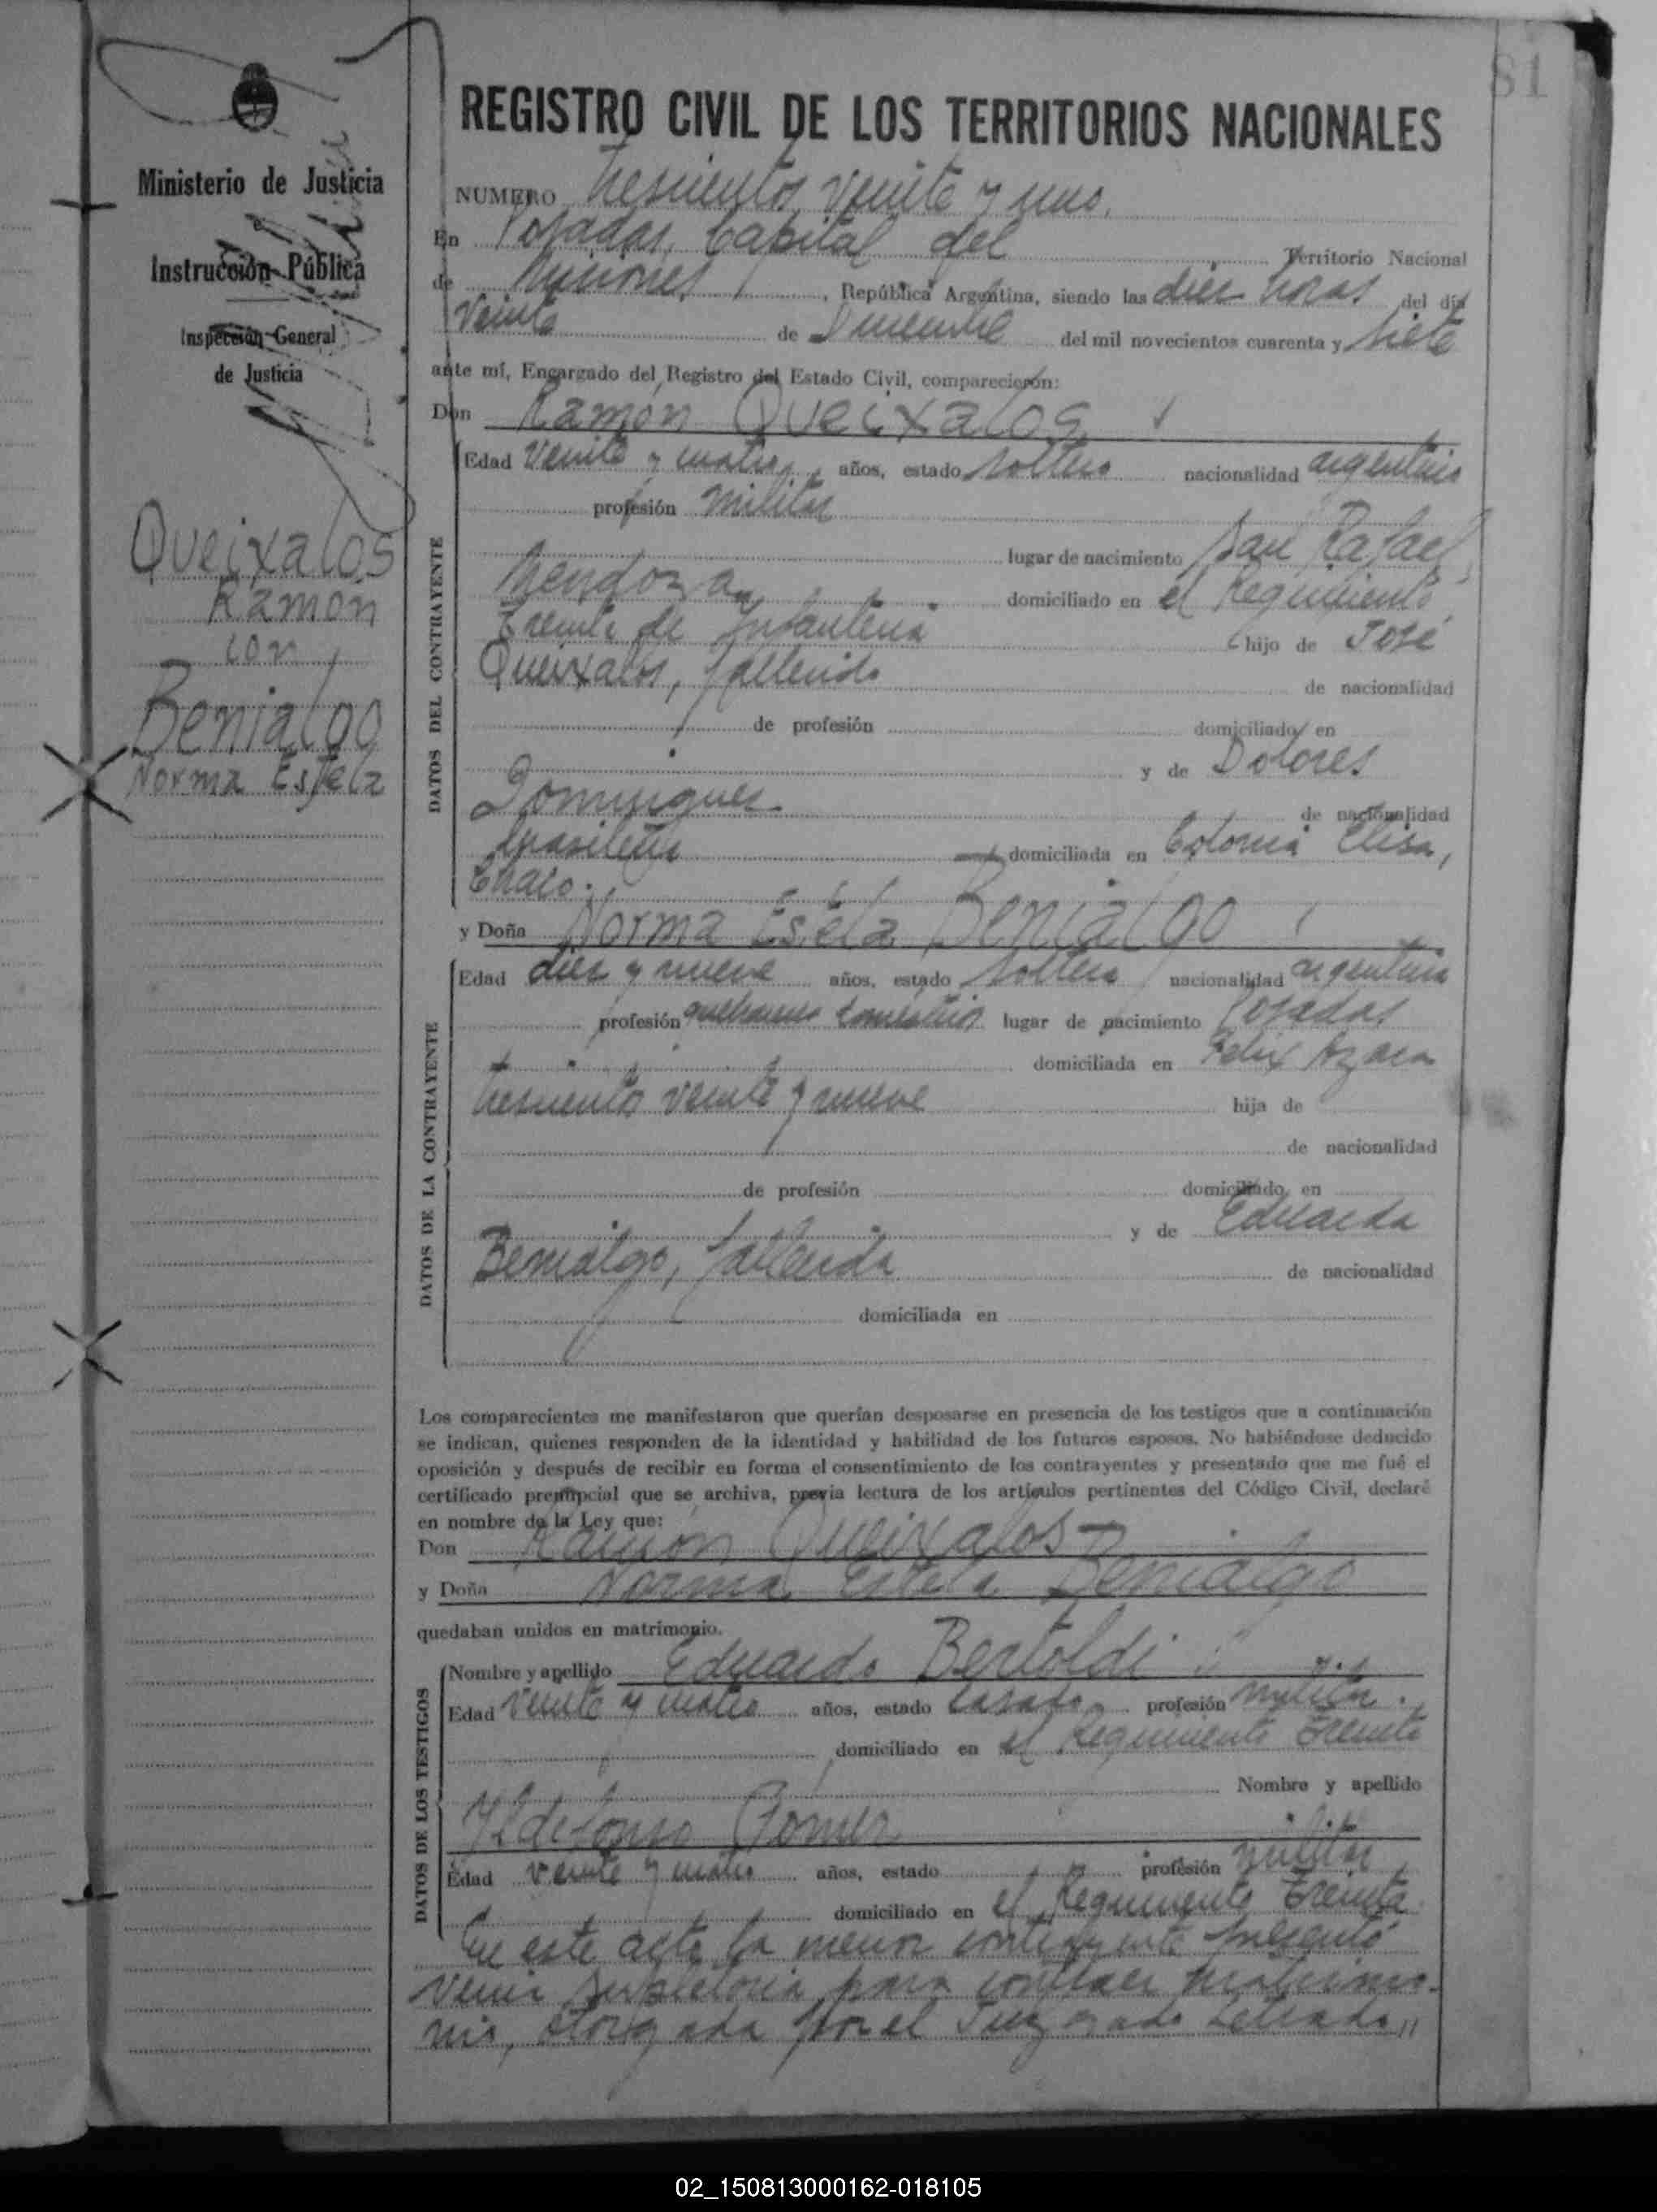 81
Ministerio de Justicia
Instrucción Pública
Inspección General
de Justicia
Queixalos
Ramón
con
Benialgo
Norma Estela
REGISTRO CIVIL DE LOS TERRITORIOS NACIONALES
NUMERO trescientos veinte y uno.
En Posadas, Capital del Territorio Nacional
de Misiones, República Argentina, siendo las diez horas del día
veinte de Diciembre del mil novecientos cuarenta y siete
ante mí, Encargado del Registro del Estado Civil, comparecieron:
Don Ramón Queixalos
DATOS DEL CONTRAYENTE
Edad veinte y cuatro, años, estado soltero nacionalidad argentino
profesión militar
lugar de nacimiento San Rafael,
Mendoza domiciliado en el Regimiento
Treinta de Infantería hijo de José
Queixalos, fallecido de nacionalidad
de profesión domiciliado en
y de Dolores
Domingues de nacionalidad
brasileña domiciliada en Colonia Elisa,
Chaco.
y Doña Norma Estela Benialgo
DATOS DE LA CONTRAYENTE
Edad diez y nueve años, estado soltera nacionalidad argentina
profesión quehaceres domésticos lugar de nacimiento Posadas
domiciliada en Felix Azara
trescientos veinte y nueve hija de
de nacionalidad
de profesión domiciliado en
y de Eduarda
Benialgo, fallecida de nacionalidad
domiciliada en
Los comparecientes me manifestaron que querían desposarse en presencia de los testigos que a continuación
se indican, quienes responden de la identidad y habilidad de los futuros esposos. No habiéndose deducido
oposición y después de recibir en forma el consentimiento de los contrayentes y presentado que me fué el
certificado prenupcial que se archiva, previa lectura de los artículos pertinentes del Código Civil, declaré
en nombre de la Ley que:
Don Ramón Queixalos
y Doña Norma Estela Benialgo
quedaban unidos en matrimonio.
DATOS DE LOS TESTIGOS
Nombre y apellido Eduardo Bertoldi
Edad veinte y cuatro años, estado casado profesión militar.
domiciliado en el Regimiento Treinta
Nombre y apellido
Ildefonso Gomez
Edad veinte y cuatro años, estado profesión militar
domiciliado en el Regimiento Treinta.
En este acto la menor contrayente presentó
venia supletoria para contraer matrimo-
nio, otorgada por el Juzgado Letrado,,
02_150813000162-018105